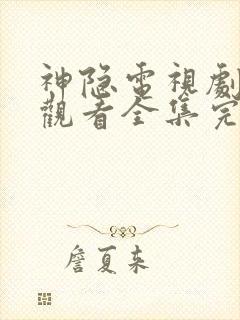 神隐电視劇
觀看全集完
詹夏来